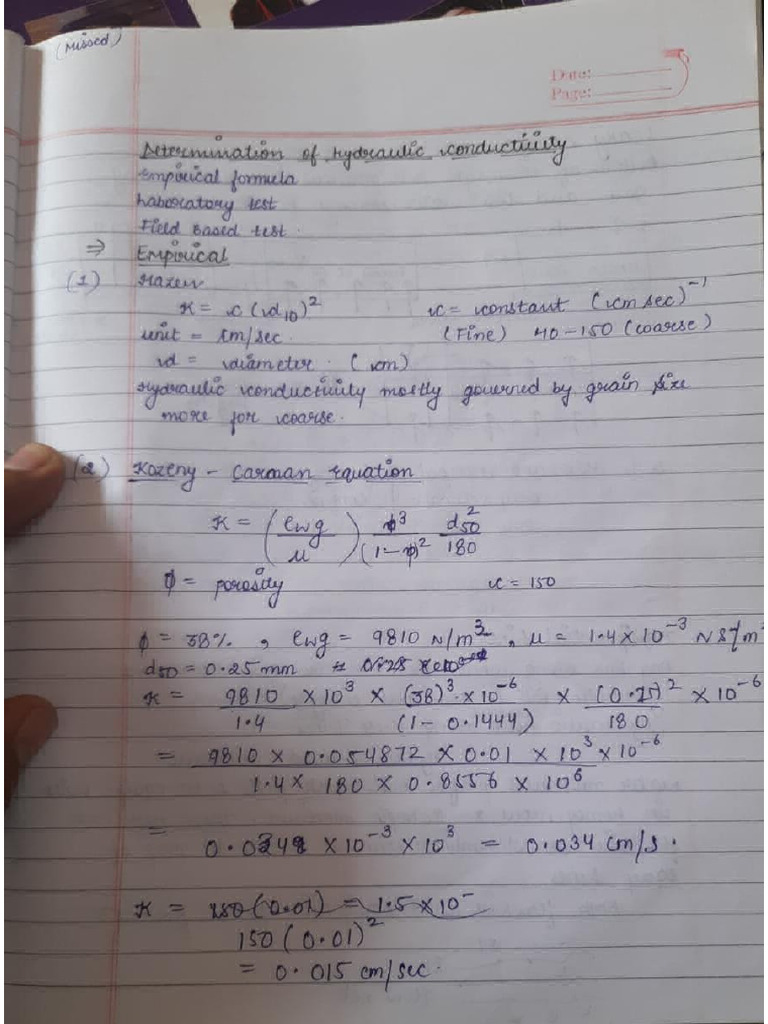 (Missed)
Date:
Page:
Determination of Hydraulic conductivity
Empirical formula
Laboratory test
Field Based test.
⇒ Empirical
(1) Hazen
K = c (d₁₀)² c = constant (cm sec)⁻¹
unit = cm/sec. (Fine) 40-150 (coarse)
d = diameter. (cm)
Hydraulic conductivity mostly governed by grain size
more for coarse.
(2) Kozeny - Carman Equation
K = (ρwg / μ) ϕ³ / (1-ϕ)² d₅₀² / 180
ϕ = porosity c = 150
ϕ = 38%, ρwg = 9810 N/m³, μ = 1.4 × 10⁻³ NS/m²
d₅₀ = 0.25 mm
K = 9810 / 1.4 × 10³ × (38)³ × 10⁻⁶ / (1 - 0.1444) × (0.25)² × 10⁻⁶ / 180
= 9810 × 0.054872 × 0.01 × 10³ × 10⁻⁶ / 1.4 × 180 × 0.8556 × 10⁶
= 0.0348 × 10⁻³ × 10³ = 0.034 cm/s.
K = 150 (0.01) = 1.5 × 10⁻
150 (0.01)²
= 0.015 cm/sec.